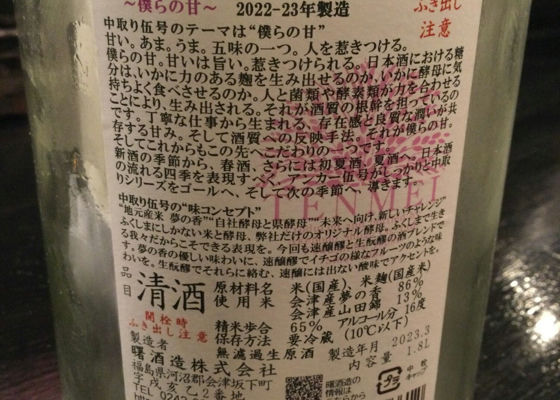 ～僕らの甘～ 2022-23年製造
ふき出し
注意
中取り伍号のテーマは"僕らの甘"
甘い。あま。うま。五味の一つ。人を惹きつける。
僕らの甘。甘いは旨い。惹きつけられる。日本酒における糖
分は、いかに力のある麹を生み出せるのか、いかに酵母に気
持ちよく食べさせるのか。人と菌類や酵素類が力を合わせる
ことにより、生み出される。それが酒質の根幹を担っているの
です。丁寧な仕事から生まれる、存在感と良質な潤いが共
存する甘み。そして酒質への反映手法。それが僕らの甘。
そしてこれからもこの先へこだわりの一つです。
新酒の季節から、春酒、さらには初夏酒、夏酒へ。日本酒
の流れる四季を表現すべく、アンカー伍号がしっかりと中取
りシリーズをゴールへ、そして次の季節へ、導きます。
TENMEI
中取り伍号の"味コンセプト"
"地元産米 夢の香""自社酵母と県酵母""未来へ向け、新しいチャレンジ"
ふくしまにしかない米と酵母、弊社だけのオリジナル酵母。ふくしまで生き
る我々だからこそできる表現を。今回も速醸酵と生酛酵の酒ブレンドで
す。夢の香の優しい味わいに、速醸酵でイチゴの様なフルーツのような味
わいを。生酛酵でそれらに絡む、速醸には出ない酸味でアクセントを。
品目 清酒
原材料名 米(国産)、米麹(国産米)
使用米 会津産夢の香 86%
会津産山田錦 13%
精米歩合 65% アルコール分 16度
保存方法 要冷蔵 (10℃以下)
無濾過生原酒 製造年月 2023.3
内容量 1.8L
開栓時
ふき出し注意
製造者
曙酒造株式会社
福島県河沼郡会津坂下町
字戌亥乙2番地
曙酒造の
情報は
プラ
中栓
キャップ